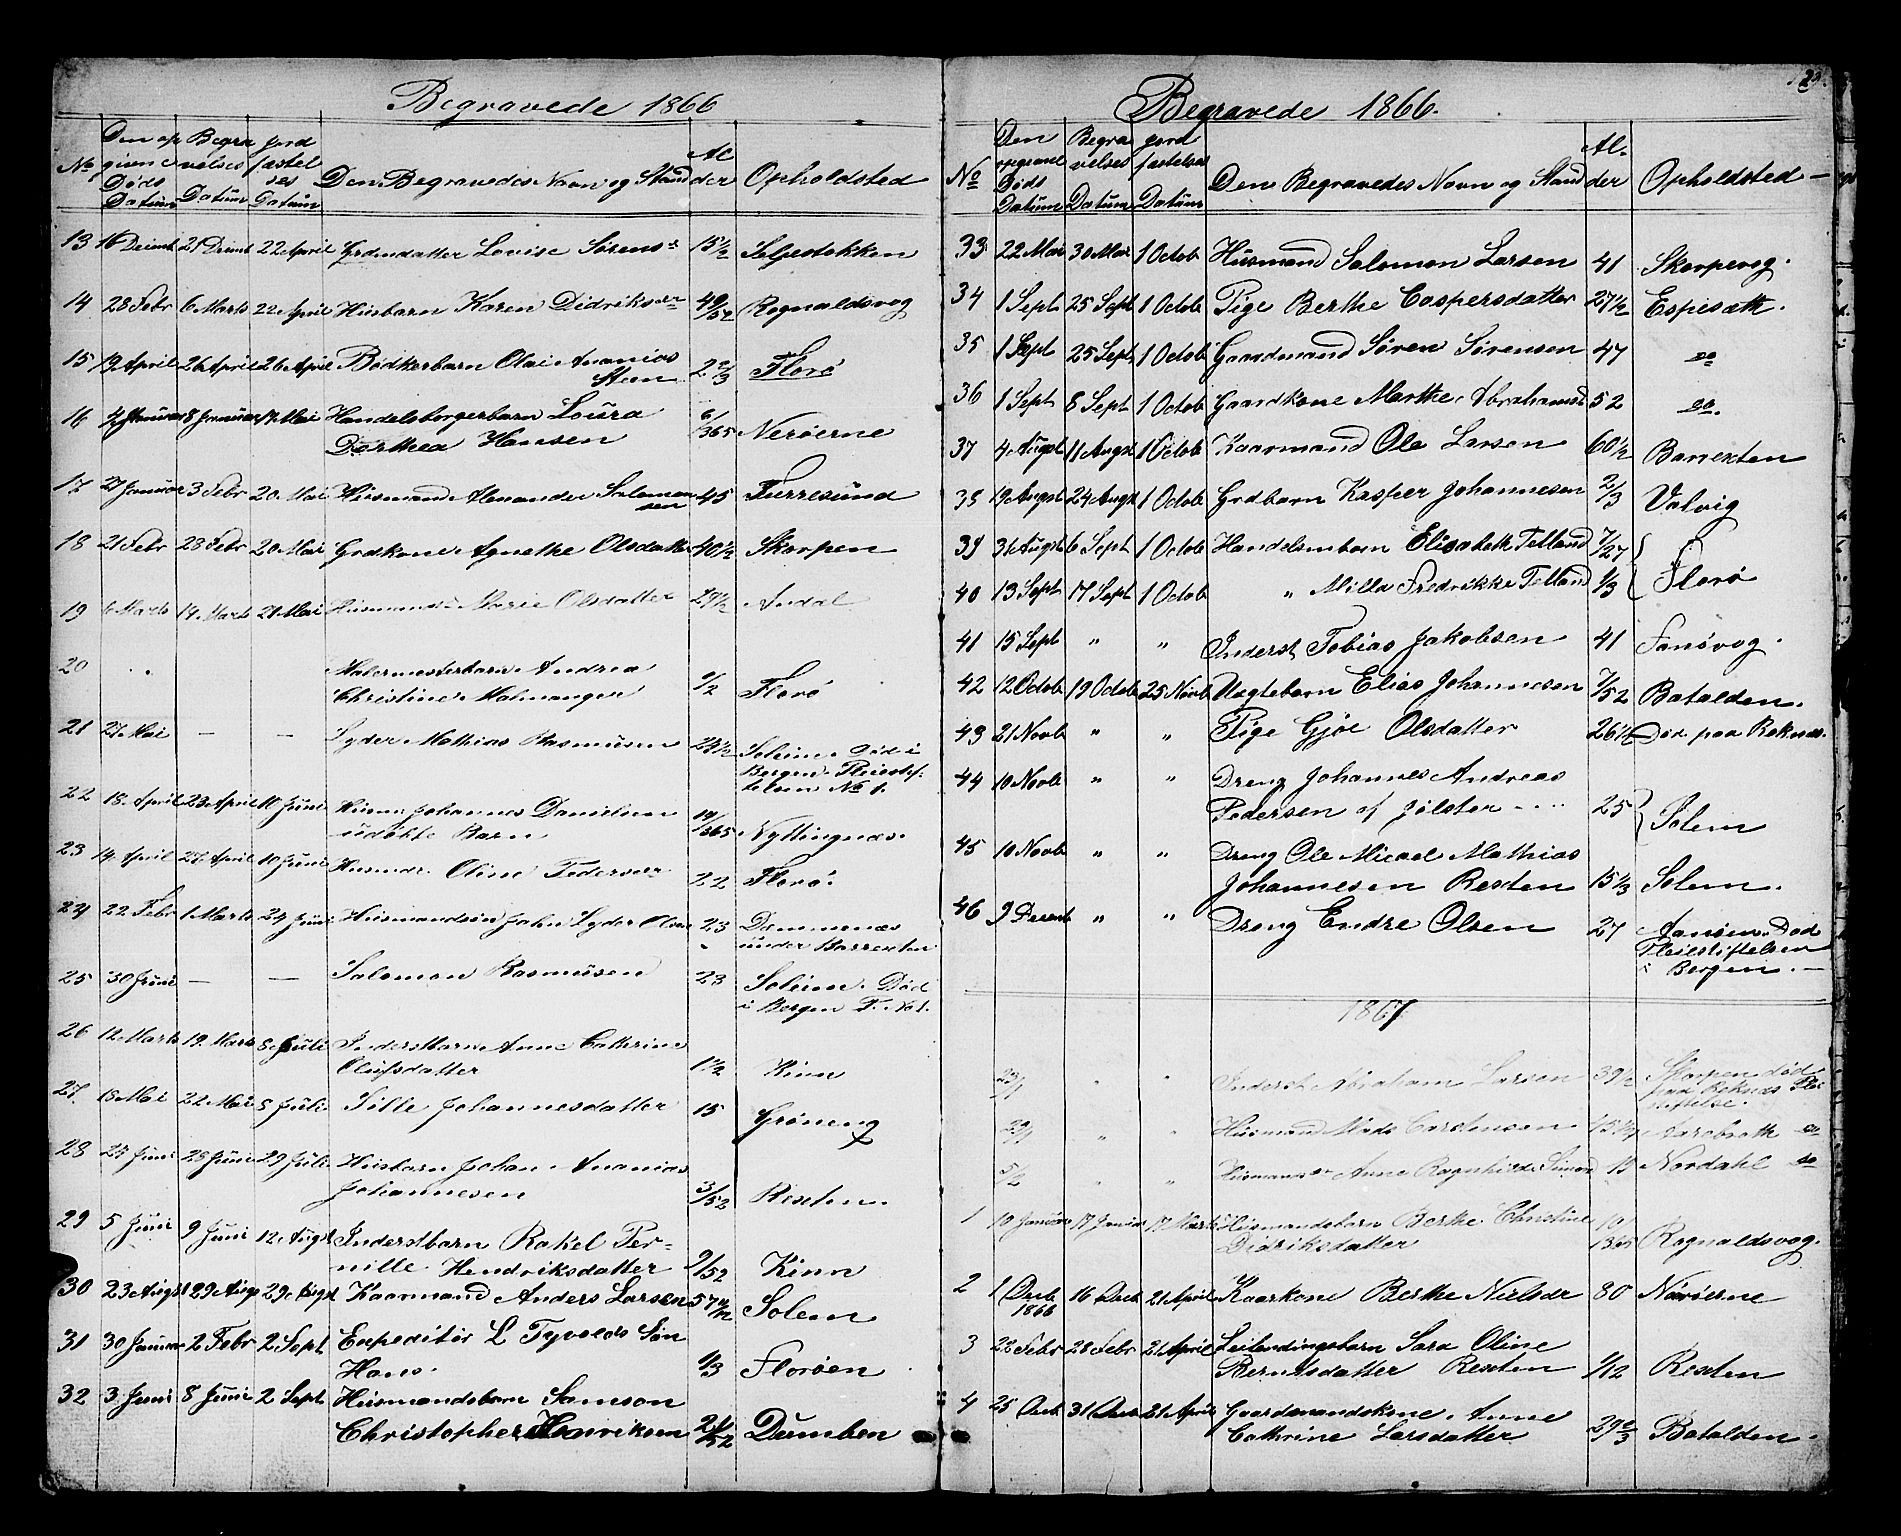 Begravede 1866
No | Den opgivne Døds Datum | Begravelses Datum | Jordfæstelses Datum | Den Begravedes Navn og Stand | Alder | Opholdsted
13 | 16 Decmb | 21 Decmb | 22 April | Grdmdatter Lovise Sørensdr | 15 1/2 | Selpestokken
14 | 28 Febr | 6 Marts | 22 April | Husbarn Karen Didriksdr | 49/52 | Rognaldsvog
15 | 19 April | 26 April | 26 April | Bødkerbarn Olai Ananias
Steen | 2 2/3 | Florø
16 | 4 Januar | 8 Januar | 14 Mai | Handelsborgerbarn Loura
Dorthea Hansen | 6/365 | Nerøerne
17 | 27 Januar | 3 Febr | 20 Mai | Husmand Alexander Salomon
sen | 45 | Furresund
18 | 21 Febr | 28 Febr | 20 Mai | Grdkone Agnethe Olsdatter | 40 1/2 | Skorpen
19 | 6 Marts | 14 Marts | 21 Mai | Marie Olsdatter | 29 1/2 | Andal
20 | Malermesterbarn Andrea
Christine Malmanger | 1/2 | Florø
21 | 27 Mai | — | — | Syder Mathias Rasmusen | 24 1/2 | Soleim Død i
Bergen Pleiestif-
telsen No 1.
22 | 18 April | 23 April | 10 Juni | Husm: Johannes Danielsen
udøbte Barn | 14/365 | Nyttingnæs.
23 | 14 April | 27 April | 10 Juni | Husmdr. Oline Pedersdr | 22 | Florø.
24 | 22 Febr | 1 Marts | 24 Juni | Husmandsøn John Syder Olsen | 23 | Dommenæs
under Barrexten
25 | 30 Juni | — | — | Salomon Rasmusen | 23 | Soleim. Død
i Bergen P. No 1.
26 | 12 Marts | 19 Marts | 8 Juli | Inderstbarn Anne Cathrine
Olufsdatter | 1 1/2 | Kinn
27. | 18 Mai | 22 Mai | 8 Juli | Sille Johannesdatter | 15 | Grøneng
28 | 25 Juni | 28 Juni | 29 Juli | Husbarn Johan Ananias
Johannesen | 3/52 | Rexten.
29 | 5 Juni | 9 Juni | 12 Augst | Inderstbarn Rakel Per-
nille Hendriksdatter | 9/52 | Kinn
30 | 23 Augst | 29 Augs | 29 Augst | Kaarmand Anders Larsen | 57 | Solem
31 | 30 Januar | 2 Febr | 2 Sept | Expeditør L Tyvolds Søn
Hans. | 1/3 | Florøen
32 | 3 Juni | 8 Juni | 2 Sept | Husmandsbarn Samson
Christopher Henriksen | Dumben
Begravede 1866.
No | Den opgivne Døds Datum | Begravelses Datum | Jordfæstelses Datum | Den Begravedes Navn og Stand | Alder | Opholdsted
33 | 22 Mai | 30 Mai | 1 Octob | Husmand Salomon Larsen | 41 | Skorpevog.
34 | 1 Sept | 25 Sept | 1 Octob | Pige Berthe Caspersdatter | 27 1/2 | Espesæth.
35 | 1 Sept | 25 Sept | 1 Octob | Gaardmand Søren Sørensen | 47 | do
36 | 1 Sept | 8 Sept | 1 Octob | Gaardkone Marthe Abrahamsd | 52 | do.
37 | 4 Augst | 11 Augst | 1 Octob | Kaarmand Ole Larsen | 60 1/2 | Barrexten
38 | 19 Augst | 24 Augst | 1 Octob | Grdbarn Kasper Johannesen | 2/3 | Valvig
39 | 31 Augst | 6 Sept | 1 Octob | Handelsmbarn Elisabeth Tetland | 7/27 | Florø
40 | 13 Sept | 17 Sept | 1 Octob | " Milla Fredrikke Tetland | 1/3
41 | 15 Sept | " | " | Inderst Tobias Jakobsen | 41 | Fanøvog.
42 | 12 Octob | 19 Octob | 25 Novb | Uægtebarn Elias Johannesen | 7/52 | Batalden.
43 | 21 Novb | " | " | Pige Gjøe Olsdatter | 26 1/2 | Død paa Reknæs.
44 | 10 Novb | " | " | Dreng Johannes Andreas
Pedersen af Jølster | 25 | Solem
45 | 10 Novb | " | " | Dreng Ole Micael Mathias
Johannesen Rexten | 15 1/3 | Solem.
46 | 9 Decemb | " | " | Dreng Endre Olsen | 27 | Død
Pleiestiftelsen
i Bergen. —
1867
23/1 | " | " | Inderst Abraham Larsen | 39 1/2 | Skorpen død
paa Reknæs Plei
stiftelse.
29/1 | " | " | Husmand Mads Carstensen | do
5/2 | " | " | Anne Ragnhilde Simond | 13 | Nordahl do
1 | 10 Januar | 17 Januar | 17 Marts | Husmandsbarn Berthe Christine
Didriksdatter | Rognaldsvog.
2 | 1 Decb
1866 | 16 Decb | 21 April | Kaarkone Berthe Nielsdr | 80 | Nærøerne
3 | 22 Febr | 28 Febr | 21 April | Leilendingsbarn Sara Oline
Berntsdatter Rexten | 1/12 | Rexten
4 | 25 Decb | 31 Decb | 21 April | Gaardmandskone Anne
Cathrine Larsdatter | 29 2/3 | Batalden.